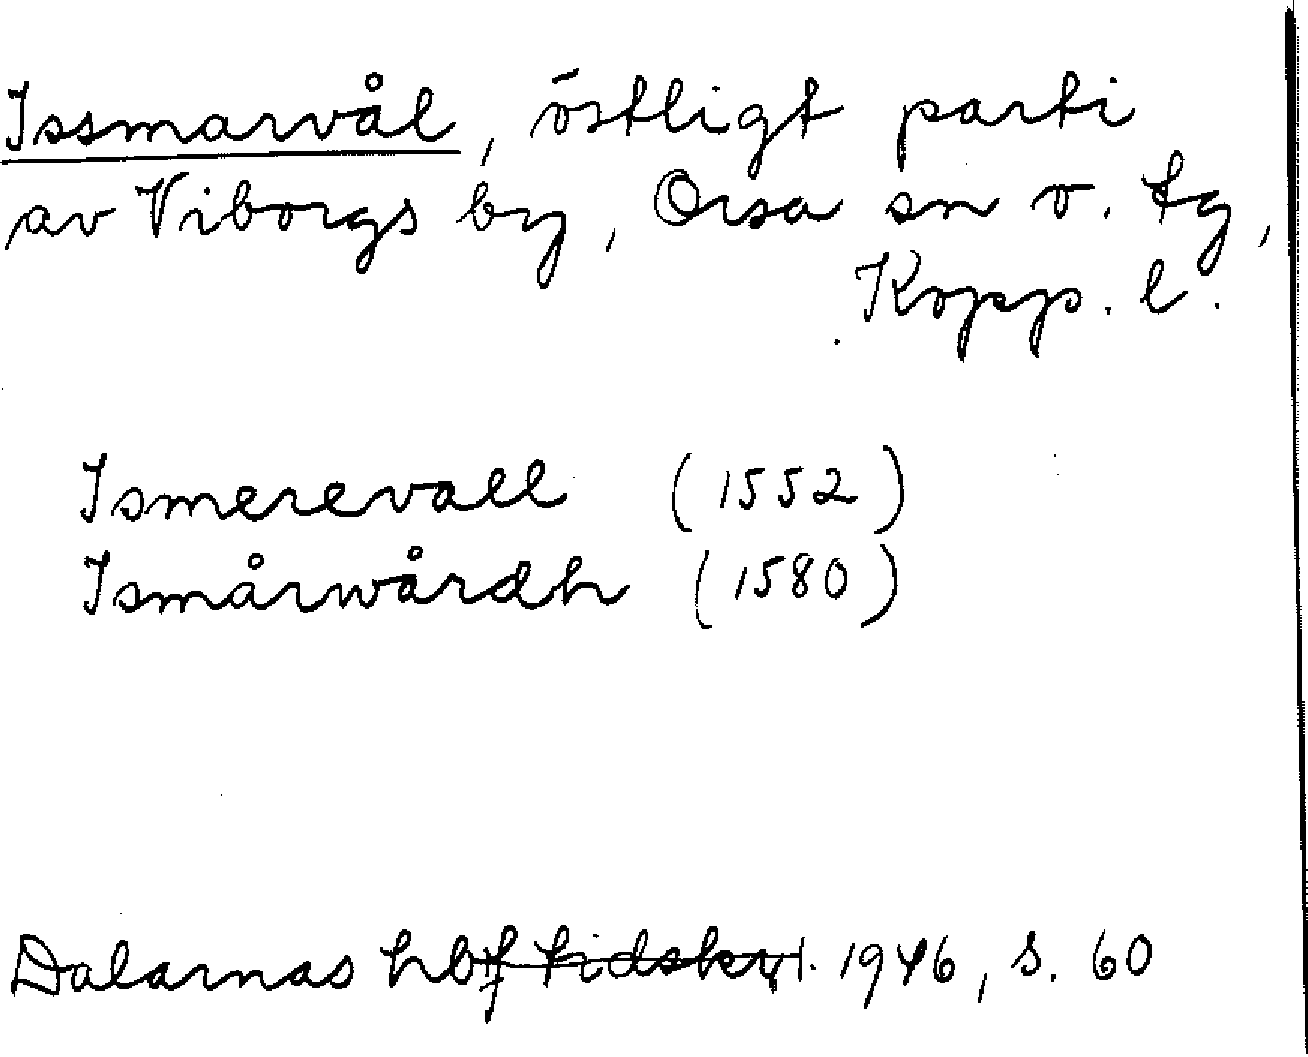 Issmarvål, östligt parti
av Viborgs by, Orsa sn o. tg,
Kopp. l.
Ismerevall (1552)
Ismårwårdh (1580)
Dalarnas hbf tidskr. 1946, s. 60